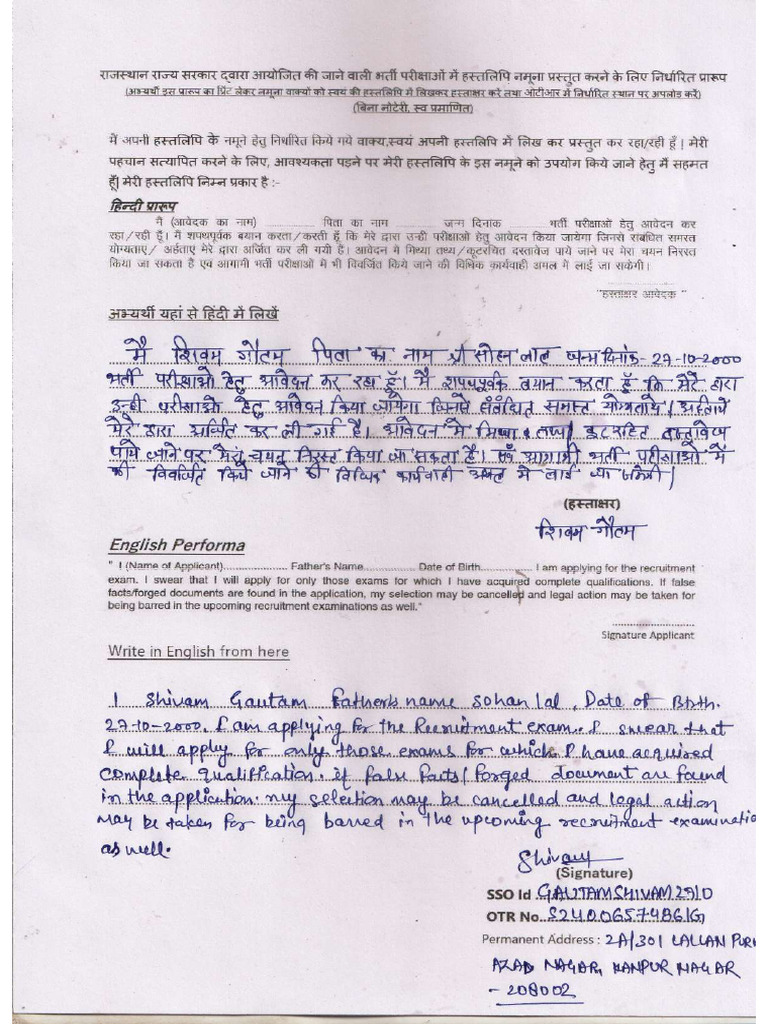 राजस्थान राज्य सरकार द्वारा आयोजित की जाने वाली भर्ती परीक्षाओं में हस्तलिपि नमूना प्रस्तुत करने के लिए निर्धारित प्रारूप
(अभ्यर्थी इस प्रारूप का प्रिंट लेकर नमूना वाक्यों को स्वयं की हस्तलिपि में लिखकर हस्ताक्षर करें तथा ओटीआर में निर्धारित स्थान पर अपलोड करें)
(बिना नोटेरी, स्व प्रमाणित)
मैं अपनी हस्तलिपि के नमूने हेतु निर्धारित किये गये वाक्य,स्वयं अपनी हस्तलिपि में लिख कर प्रस्तुत कर रहा/रही हूँ | मेरी
पहचान सत्यापित करने के लिए, आवश्यकता पड़ने पर मेरी हस्तलिपि के इस नमूने को उपयोग किये जाने हेतु मैं सहमत
हूँ| मेरी हस्तलिपि निम्न प्रकार है :-
हिन्दी प्रारूप
" मैं (आवेदक का नाम) ................ पिता का नाम ................ जन्म दिनांक ............ भर्ती परीक्षाओं हेतु आवेदन कर
रहा/रही हूँ। मैं शपथपूर्वक बयान करता/करती हूँ कि मेरे द्वारा उन्ही परीक्षाओं हेतु आवेदन किया जायेगा जिनसे संबंधित समस्त
योग्यताएं/ अर्हताए मेरे द्वारा अर्जित कर ली गयी है। आवेदन में मिथ्या तथ्य/कूटरचित दस्तावेज पाये जाने पर मेरा चयन निरस्त
किया जा सकता है एवं आगामी भर्ती परीक्षाओं में भी विवर्जित किये जाने की विधिक कार्यवाही अमल में लाई जा सकेगी।
"हस्ताक्षर आवेदक"
अभ्यर्थी यहां से हिंदी में लिखें
मै शिवम गौतम पिता का नाम श्री सोहन लाल जन्म दिनांक- 27-10-2000
भर्ती परीक्षाओ हेतु आवेदन कर रहा हूँ। मै शपथपूर्वक बयान करता हूँ कि मेरे द्वारा
उन्ही परीक्षाओ हेतु आवेदन किया जायेगा जिनसे संबंधित समस्त योग्यताये/ अर्हताये
मेरे द्वारा अर्जित कर ली गई है। आवेदन मे मिथ्या
पाये जाने पर मेरा चयन निरस्त किया जा सकता है। एवं आगामी भर्ती परीक्षाओ मे
विवर्जित किये जाने की विधिक कार्यवाही अमल मे लाई जा
(हस्ताक्षर)
शिवम गौतम
English Performa
" I (Name of Applicant)...................... Father's Name.................. Date of Birth.................. I am applying for the recruitment
exam. I swear that I will apply for only those exams for which I have acquired complete qualifications. If false
facts/forged documents are found in the application, my selection may be cancelled and legal action may be taken for
being barred in the upcoming recruitment examinations as well."
Signature Applicant
Write in English from here
I Shivam Gautam Father's name Sohan lal, Date of Birth.
27-10-2000. I am applying for the Recruitment exam. I swear that
I will apply for only those exams for which I have acquired
complete qualification. if false facts/ forged document are found
in the application. my selection may be cancelled and legal action
may be taken for being barred in the upcoming recruitment examination
as well.
Shivam
(Signature)
SSO Id GAUTAMSHIVAM2910
OTR No. S24006574861G
Permanent Address : 2A/301 LALLAN PURW
AZAD NAGAR, KANPUR NAGAR
- 208002